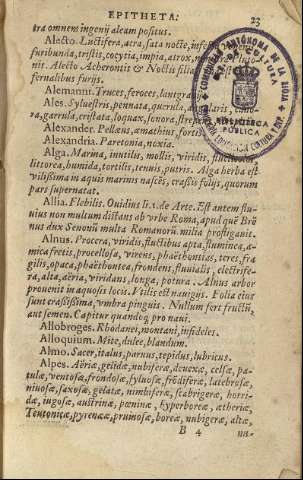 EPITHETA. 23
tra omnem ingenij aleam positus.
Alecto. Luctifera, atra, sata nocte,
furibunda, tristis, cocytia, impia, atrox,
nis. Alecto Acherontis & Noctis filia
fernalibus furijs.
Alemanni. Truces, feroces,
Ales. Syluestris, pennata, querula,
ra, garrula, cristata, loquax, sonora,
Alexander. Pellæus, æmathius, fortis
Alexandria. Paretonia, noxia.
Alga. Marina, inutilis, mollis, viridis,
littorea, humida, tortilis, tenuis, putris. Alga herba est
vilissima in aquis marinis nascēs, crassis folijs, quorum
pars supernatat.
Allia. Flebilis. Ouidius li.1. de Arte. Est autem flu-
uius non multum distans ab vrbe Roma, apud quē Brē
nus dux Senonū multa Romanorū milia profligauit.
Alnus. Procera, viridis, fluctibus apta, fluminea, a-
mica fretis, procellosa, vireus, phaëthontias, teres, fra
gilis, opaca, phaëthontea, frondens, fluuialis,
ra, alta, aëria, viridans, longa, potura. Alnus arbor
prouenit in aquosis locis. Vtilis est nauigijs. Folia eius
sunt crassissima, vmbra pinguis. Nullum fert fructū,
aut semen. Capitur quandoq; pro naui.
Allobroges. Rhodanei, montani, infideles.
Alloquium. Mite, dulce, blandum.
Almo. Sacer, italus, paruus, tepidus, lubricus.
Alpes. Aëriæ, gelidæ, nubiferæ, deuexæ, celsæ, pa-
tulæ, ventosæ, frondosæ, syluosæ, frōdiferæ, latebrosæ,
niuosæ, saxosæ, gelatæ, nimbiferæ, scabrigeræ, horri-
dæ, iugosæ, austrinæ, pœninæ, hyperboreæ, ætheriæ,
Teutonicæ, pyrenææ, pruinosæ, boreæ, nubigeræ, altæ,
B 4 ni-
BIBLIOTECA
PÚBLICA